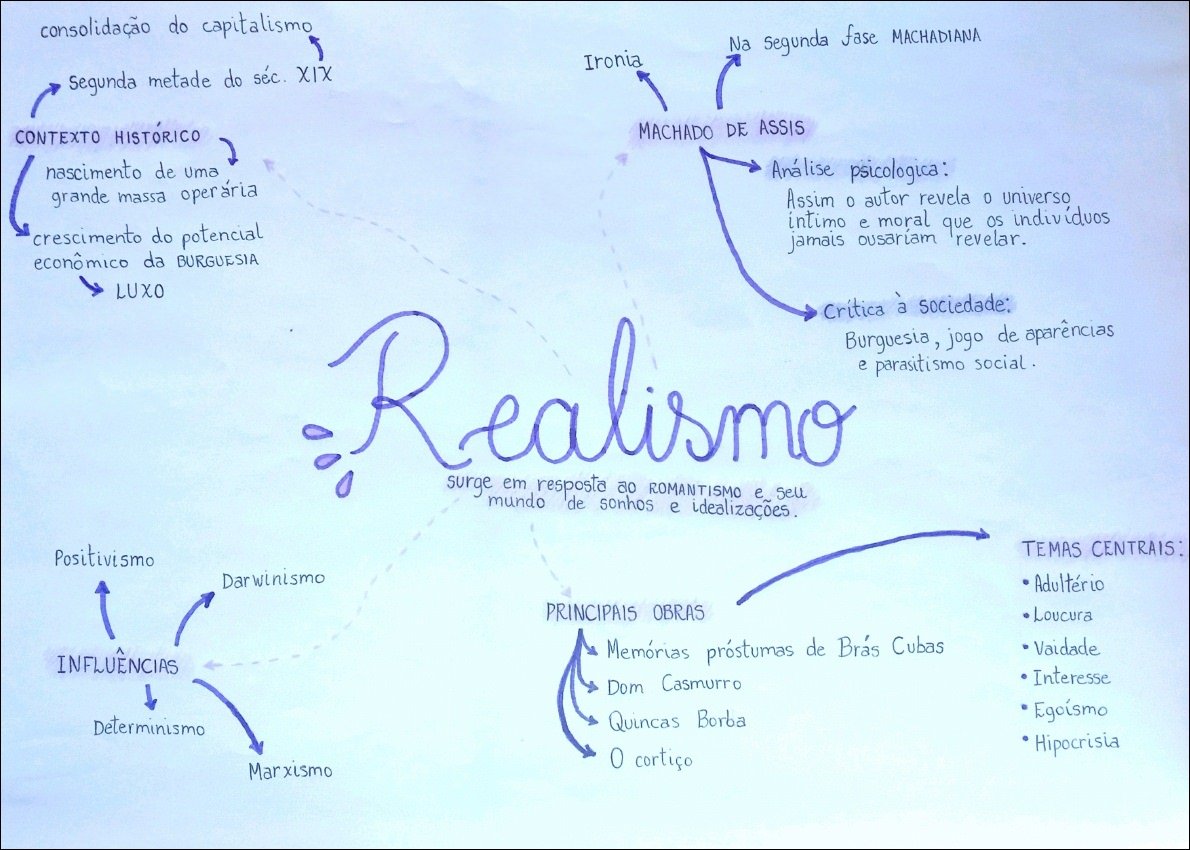 Realismo
surge em resposta ao ROMANTISMO e seu
mundo de sonhos e idealizações.
CONTEXTO HISTÓRICO
Segunda metade do séc. XIX
consolidação do capitalismo
nascimento de uma
grande massa operária
crescimento do potencial
econômico da BURGUESIA
LUXO
MACHADO DE ASSIS
Ironia
Na segunda fase MACHADIANA
Análise psicologica:
Assim o autor revela o universo
íntimo e moral que os indivíduos
jamais ousariam revelar.
Crítica à sociedade:
Burguesia, jogo de aparências
e parasitismo social.
INFLUÊNCIAS
Positivismo
Darwinismo
Determinismo
Marxismo
PRINCIPAIS OBRAS
Memórias próstumas de Brás Cubas
Dom Casmurro
Quincas Borba
O cortiço
TEMAS CENTRAIS:
• Adultério
• Loucura
• Vaidade
• Interesse
• Egoísmo
• Hipocrisia